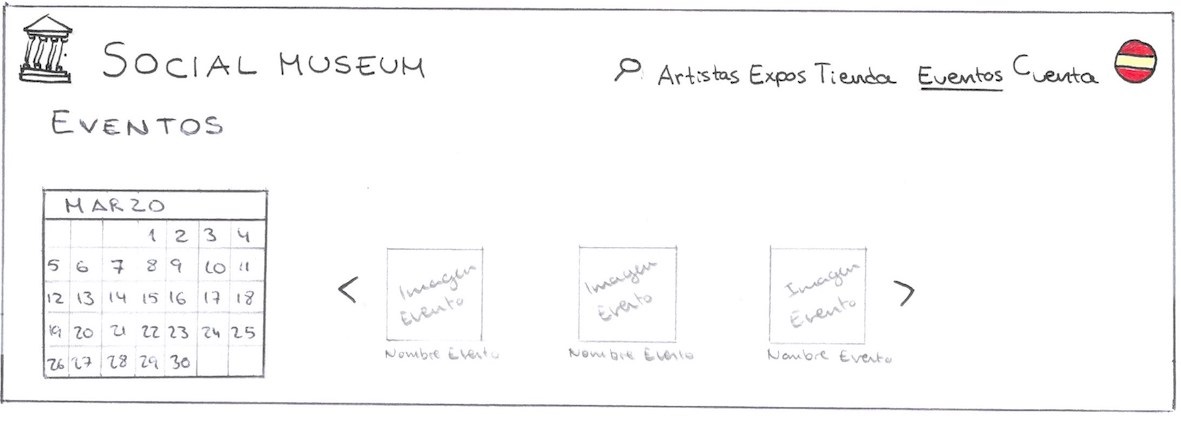 SOCIAL MUSEUM
Artistas Expos Tienda Eventos Cuenta
EVENTOS
MARZO
1 2 3 4
5 6 7 8 9 10 11
12 13 14 15 16 17 18
19 20 21 22 23 24 25
26 27 28 29 30
<
Imagen
Evento
Nombre Evento
Imagen
Evento
Nombre Evento
Imagen
Evento
Nombre Evento
>